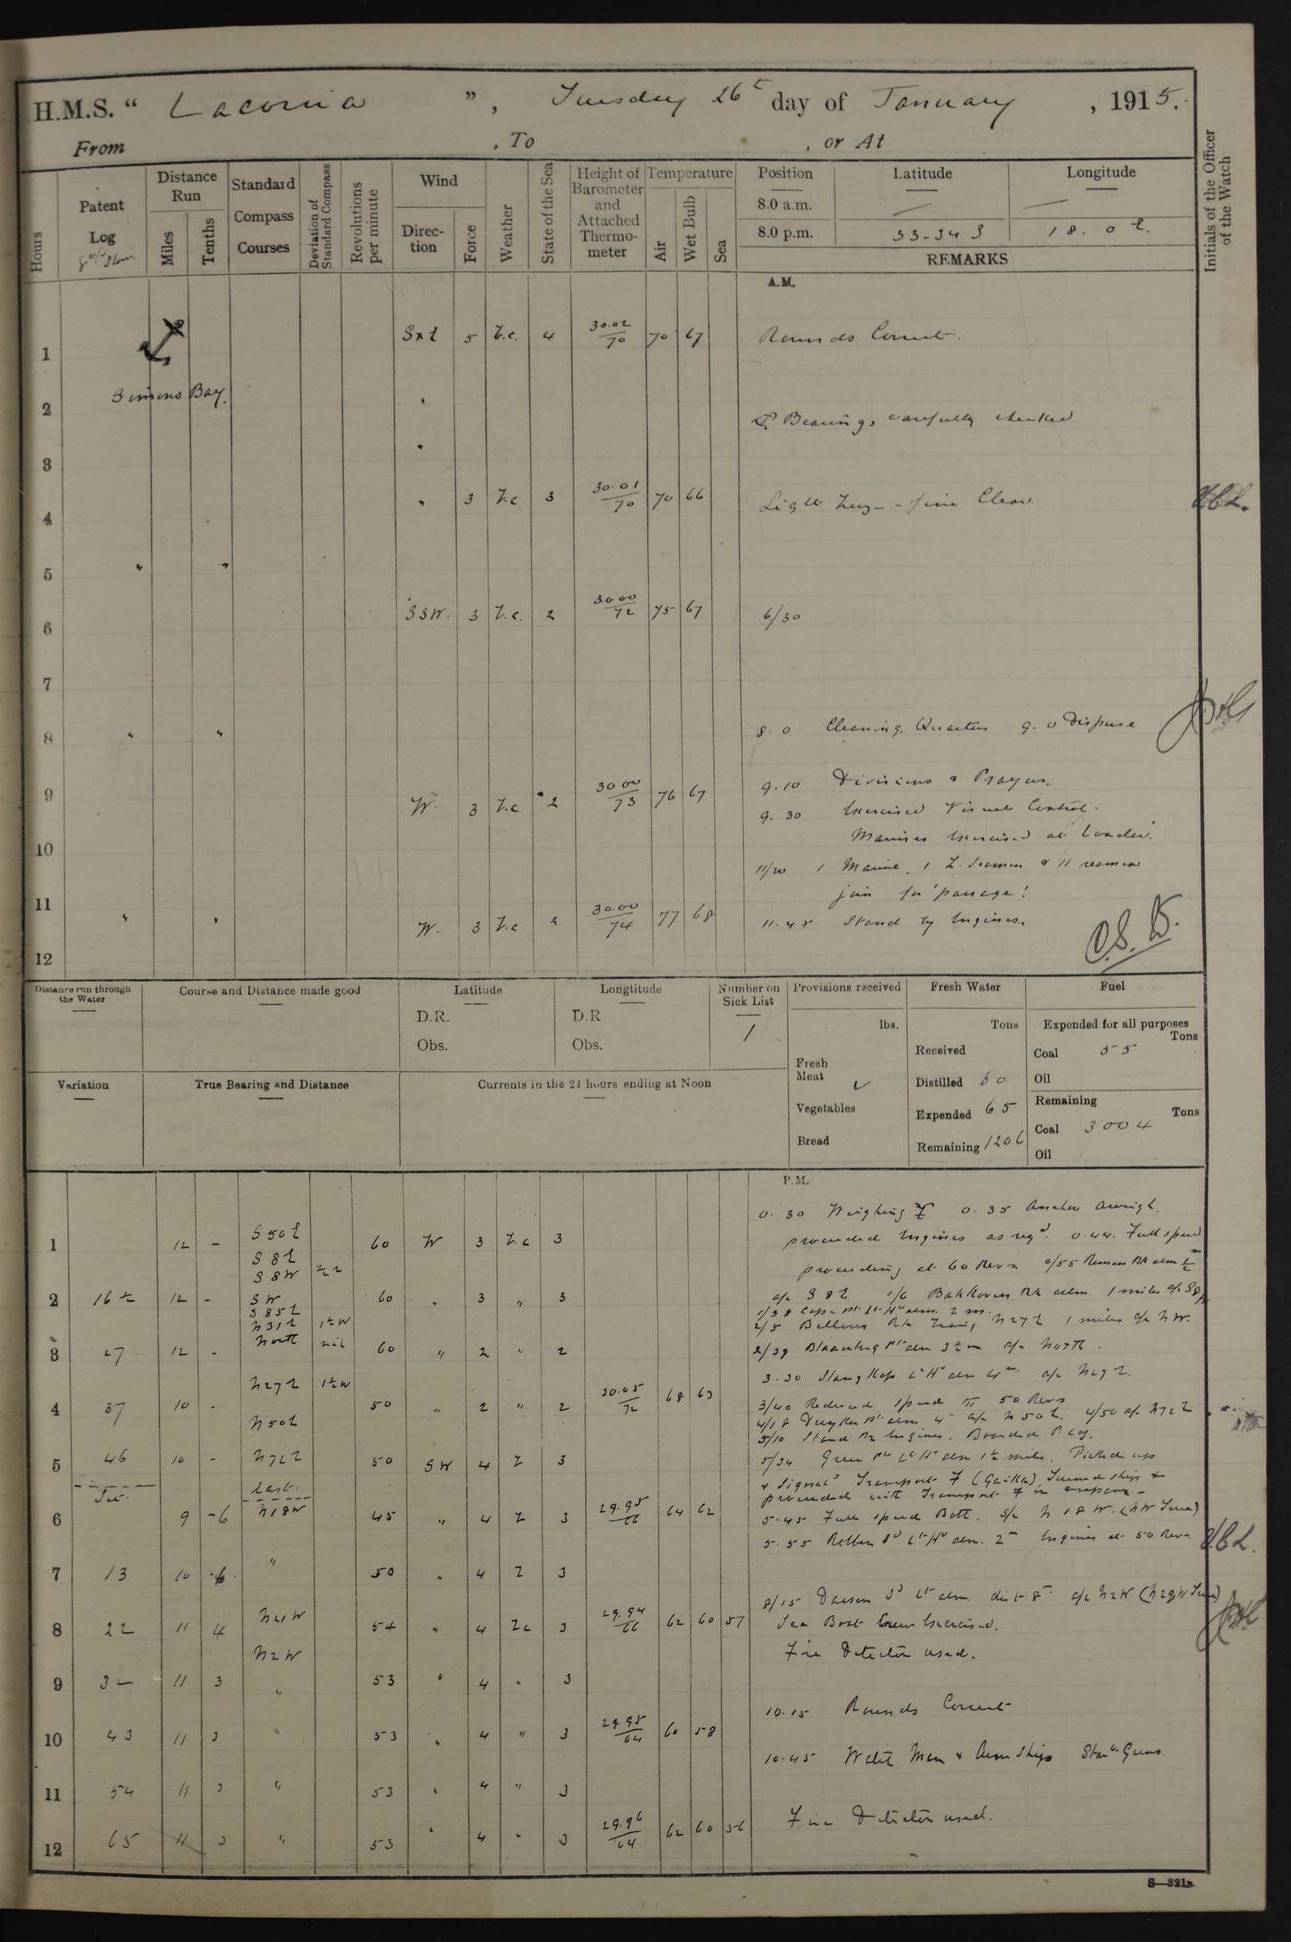 H.M.S. " Laconia ", Tuesday 26th day of January, 1915.
From , To , or At
Hours
Patent Log
Distance Run
Miles
Tenths
Standard Compass Courses
Deviation of Standard Compass
Revolutions per minute
Wind
Direction
Force
Weather
State of the Sea
Height of Barometer and Attached Thermometer
Temperature
Air
Wet Bulb
Sea
Position
Latitude
Longitude
8.0 a.m.
8.0 p.m. 33-34 S 18. 0 E.
REMARKS
Initials of the Officer of the Watch
A.M.
1 SxE 5 b.c. 4 30.02/70 70 67 Rounds Correct.
Simons Bay.
2 Bearings carefully checked.
3
4 3 b.c 3 30.01/70 70 66 Light - fine Clear.
5
6 SSW. 3 b.c. 2 30.00/72 75 67 6/30
7
8 8.0 Cleaning Quarters 9.0 Disperse
9 W. 3 b.c 2 30.00/73 76 67 9.10 Divisions & Prayers.
9.30 Exercised Visual Control.
Marines exercised at Loader.
10
11/20 1 Marine, 1 L. Seaman & 11 seamen
join for 'passage'!
11
12 W. 3 b.c 2 30.00/74 77 68 11.45 Stand by Engines.
Distance run through the Water
Course and Distance made good
Latitude
D.R.
Obs.
Longtitude
D.R
Obs.
Number on Sick List
1
Provisions received
lbs.
Fresh Meat
Vegetables
Bread
Fresh Water
Tons
Received
Distilled 60
Expended 65
Remaining 1206
Fuel
Expended for all purposes
Tons
Coal 55
Oil
Remaining
Tons
Coal 3004
Oil
Variation
True Bearing and Distance
Currents in the 24 hours ending at Noon
P.M.
0.30 Weighing 0.35 Anchor aweigh.
1 12 - S 50 E 60 W 3 b.c 3 proceeded Engines as reqd. 0.44. Full speed
S 8 E
S 8 W
proceeding at 60 Revs 0/55 Roman Rk abm
2 12 - SW 60 3 " 3 a/c S 8 E
S 85 E
N 31 E 1½ W
2/5 Bellows Rk N 27 E 1 mile a/c NW.
3 27 12 - North nil 60 " 2 " 2 2/39 abm 3½ m a/c North.
N 27 E 1½ W 3.30 Slangkop Lt Ho abm a/c N 27 E.
4 37 10 - 50 " 2 " 2 30.05/72 68 63 3/40 Reduced speed to 50 Revs
N 50 E
4/18 Duyker Pt abm a/c N 50 E. 4/50 a/c N 72 E
5/10 Stand By Engines.
5 46 10 - N 72 E 50 SW 4 b 3 5/34 Green Pt Lt Ho abm 1½ miles. Picked up
& signald Transport 7 (Gaika), Turned ships &
proceeded with Transport 7 in company -
6 9 -6 N 18 W 45 " 4 b 3 29.95/66 64 62 5.45 Full speed Both. S/c N 18 W. (NW True)
5.55 Robben Id Lt Ho abm. 2 m Engines at 50 Revs
7 13 10 -6 " 50 4 b 3
8/15 Dassen Id Lt abm dist 8 m a/c N 2 W (N 29 W True)
8 22 11 4 N 21 W 54 4 bc 3 29.94/66 62 60 57 Sea Boat Crew Exercised.
N 2 W Fire Detector used.
9 32 11 3 " 53 " 4 " 3
10.15 Rounds Correct
10 43 11 3 " 53 4 " 3 29.95/64 60 58
10.45 Watch Man & Arm Ships Starbd Guns.
11 54 11 3 " 53 4 " 3
12 65 11 3 " 53 4 " 3 29.96/64 62 60 56 Fire Detector used.
S—321a